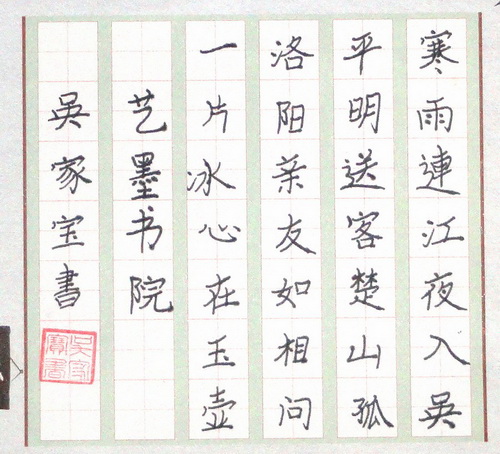 寒雨連江夜入吳
平明送客楚山孤
洛阳亲友如相问
一片冰心在玉壶
艺墨书院
吳家宝書
吴家寶書